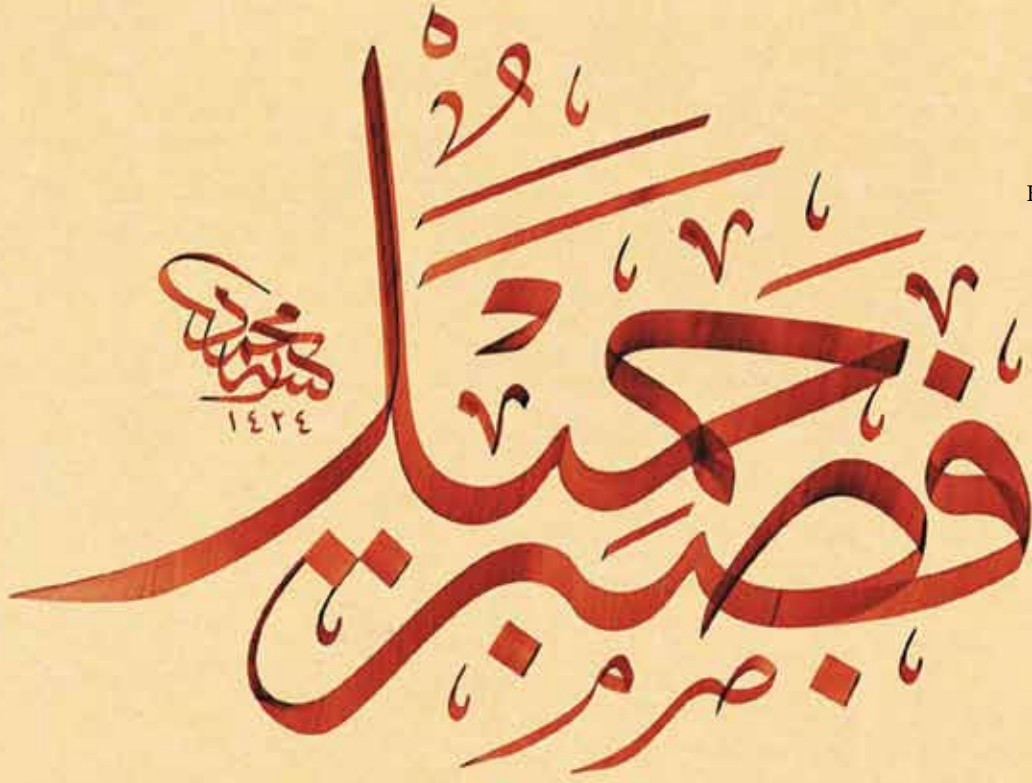 فَصَبْرٌ جَمِيلٌ
١٤٢٤